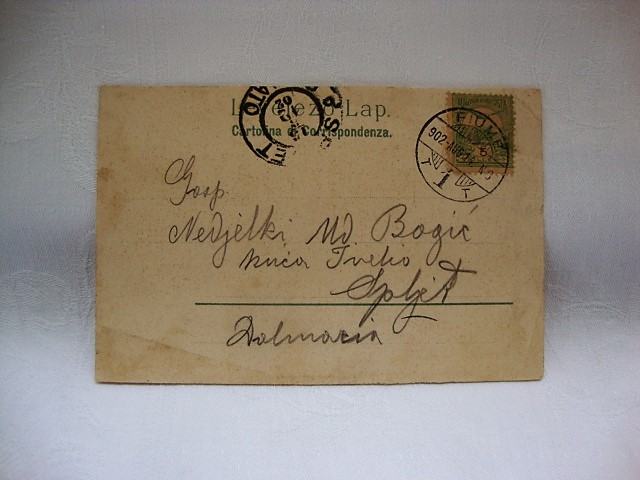 Lap.
Cartolina di Corrispondenza.
FIUME
902
1
T T
Gosp.
Nedjelki ud Bogić
kuća Tvelio
Spljet
Dalmacia